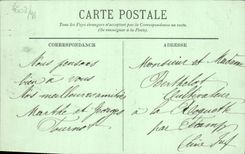 CARTE POSTALE
Tous les Pays étrangers n'acceptent pas la Correspondance au recto.
(Se renseigner à la Poste)
CORRESPONDANCE
Nous pensons
bien à vous
Nos meilleures amitiés
Marthe et Georges
ADRESSE
Monsieur et Madame
Berthelot
Cultivateur
à
par Étampes